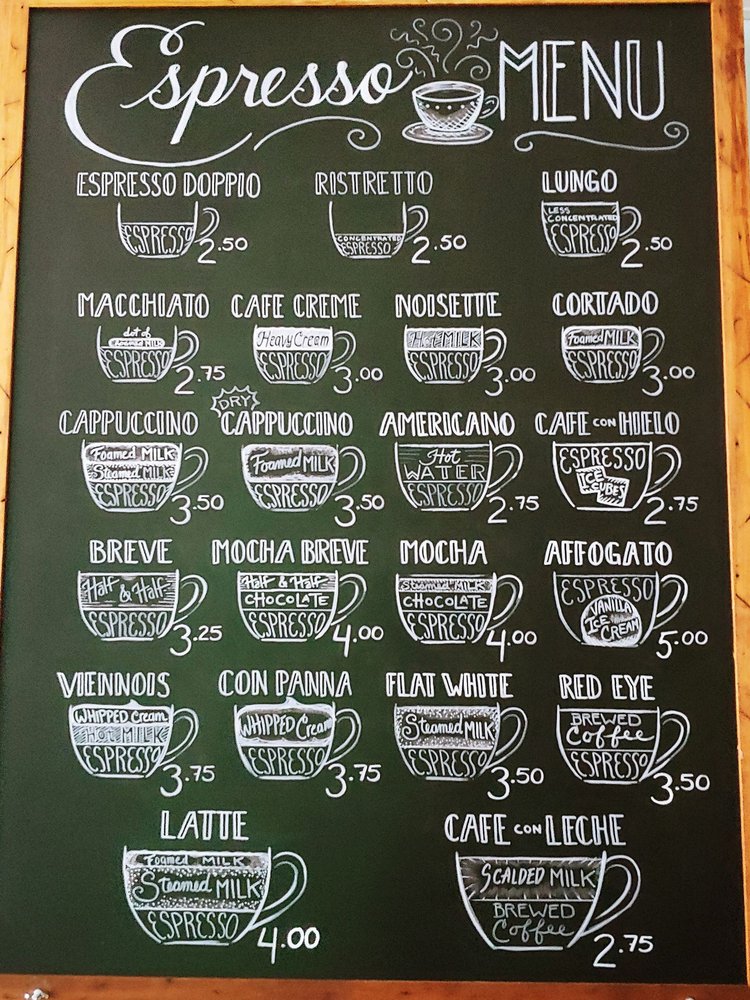 Espresso MENU
ESPRESSO DOPPIO
ESPRESSO
2.50
RISTRETTO
CONCENTRATED
ESPRESSO
2.50
LUNGO
LESS
CONCENTRATED
ESPRESSO
2.50
MACCHIATO
dot of
foamed MILK
ESPRESSO
2.75
CAFE CREME
Heavy Cream
ESPRESSO
3.00
NOISETTE
Hot MILK
ESPRESSO
3.00
CORTADO
Foamed MILK
ESPRESSO
3.00
CAPPUCCINO
Foamed MILK
Steamed MILK
ESPRESSO
3.50
DRY
CAPPUCCINO
Foamed MILK
ESPRESSO
3.50
AMERICANO
Hot
WATER
ESPRESSO
2.75
CAFE CON HIELO
ESPRESSO
ICE
CUBES
2.75
BREVE
Half & Half
ESPRESSO
3.25
MOCHA BREVE
Half & Half
CHOCOLATE
ESPRESSO
4.00
MOCHA
Steamed MILK
CHOCOLATE
ESPRESSO
4.00
AFFOGATO
ESPRESSO
VANILLA
ICE
CREAM
5.00
VIENNOIS
WHIPPED Cream
HOT MILK
ESPRESSO
3.75
CON PANNA
WHIPPED Cream
ESPRESSO
3.75
FLAT WHITE
Steamed MILK
ESPRESSO
3.50
RED EYE
BREWED
Coffee
ESPRESSO
3.50
LATTE
Foamed MILK
Steamed MILK
ESPRESSO
4.00
CAFE CON LECHE
SCALDED MILK
BREWED
Coffee
2.75